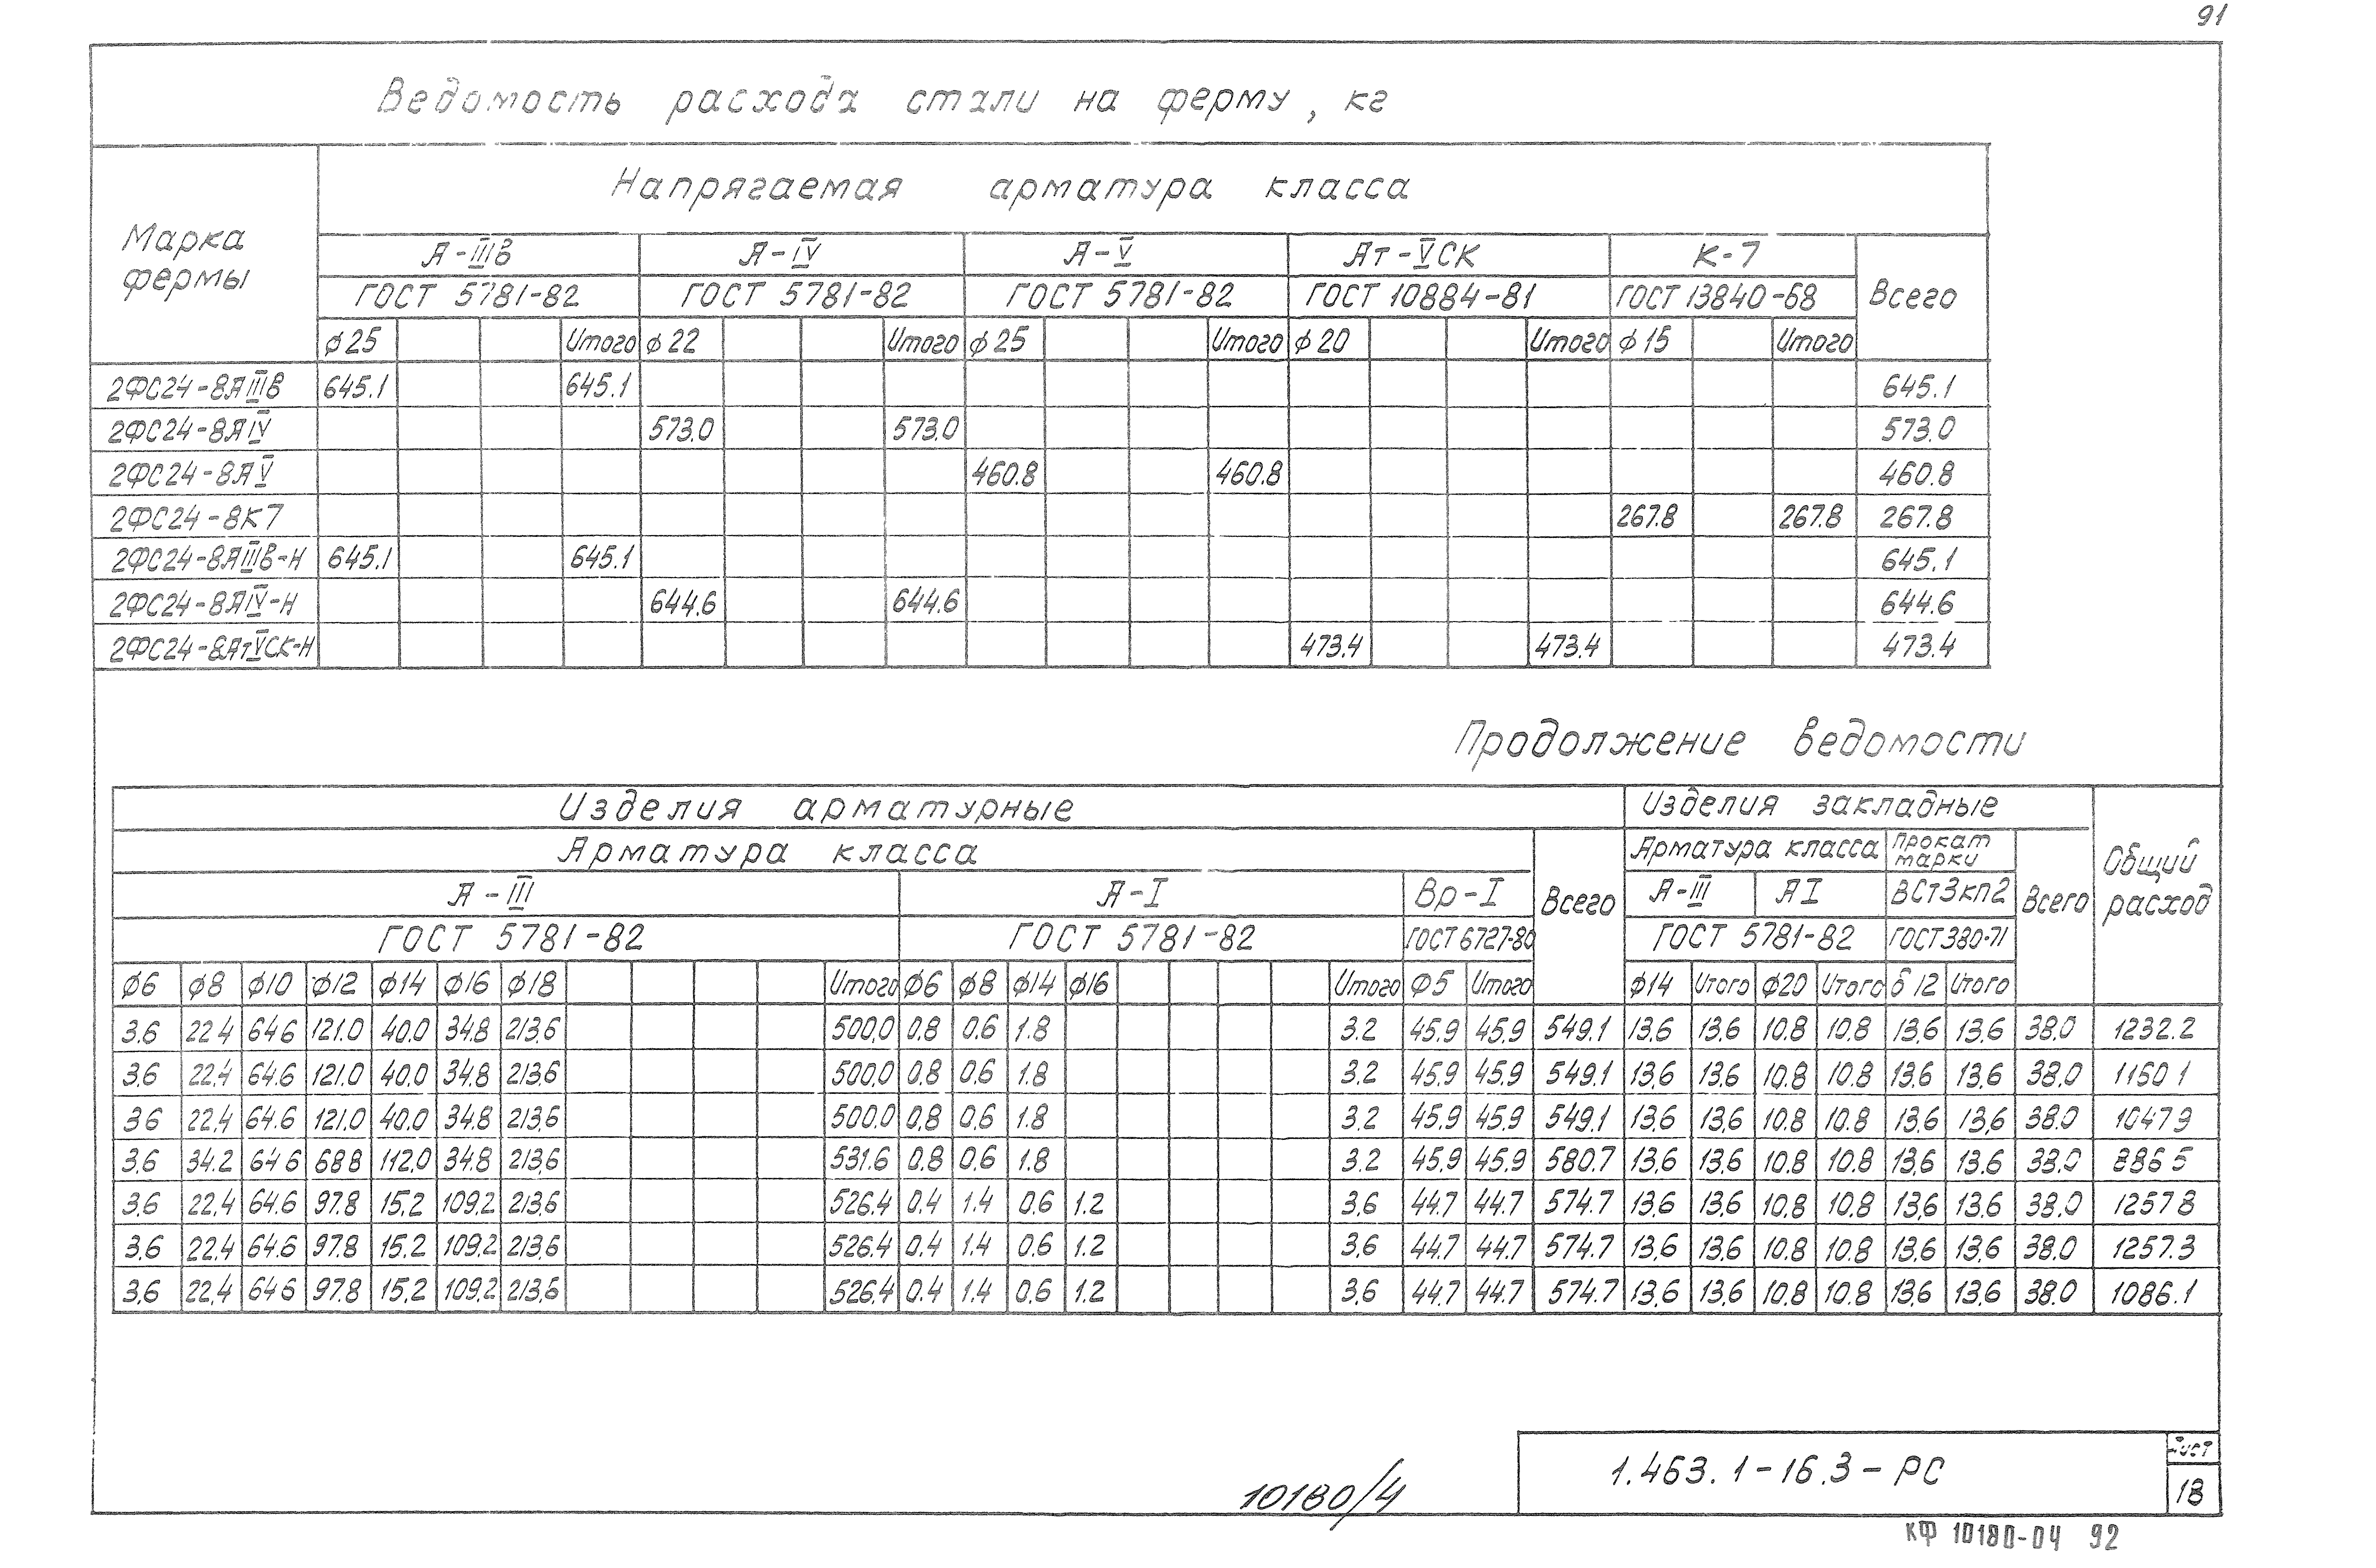 91
Ведомость расхода стали на ферму, кг
Марка фермы
Напрягаемая арматура класса
А-IIIв А-IV А-V Ат-VСК К-7 Всего
ГОСТ 5781-82 ГОСТ 5781-82 ГОСТ 5781-82 ГОСТ 10884-81 ГОСТ 13840-68
ф25 Итого ф22 Итого ф25 Итого ф20 Итого ф15 Итого
2ФС24-8АIIIв 645.1 645.1 645.1
2ФС24-8АIV 573.0 573.0 573.0
2ФС24-8АV 460.8 460.8 460.8
2ФС24-8К7 267.8 267.8 267.8
2ФС24-8АIIIв-Н 645.1 645.1 645.1
2ФС24-8АIV-Н 644.6 644.6 644.6
2ФС24-8АтVСК-Н 473.4 473.4 473.4
Продолжение ведомости
Изделия арматурные Изделия закладные Общий расход
Арматура класса Всего Арматура класса Прокат марки Всего
А-III А-I Вр-I А-III АI ВСт3кп2
ГОСТ 5781-82 ГОСТ 5781-82 ГОСТ 6727-80 ГОСТ 5781-82 ГОСТ 380-71
ф6 ф8 ф10 ф12 ф14 ф16 ф18 Итого ф6 ф8 ф14 ф16 Итого ф5 Итого ф14 Итого ф20 Итого δ12 Итого
3.6 22.4 64.6 121.0 40.0 34.8 213.6 500.0 0.8 0.6 1.8 3.2 45.9 45.9 549.1 13.6 13.6 10.8 10.8 13.6 13.6 38.0 1232.2
3.6 22.4 64.6 121.0 40.0 34.8 213.6 500.0 0.8 0.6 1.8 3.2 45.9 45.9 549.1 13.6 13.6 10.8 10.8 13.6 13.6 38.0 1160.1
3.6 22.4 64.6 121.0 40.0 34.8 213.6 500.0 0.8 0.6 1.8 3.2 45.9 45.9 549.1 13.6 13.6 10.8 10.8 13.6 13.6 38.0 1047.9
3.6 34.2 64.6 68.8 112.0 34.8 213.6 531.6 0.8 0.6 1.8 3.2 45.9 45.9 580.7 13.6 13.6 10.8 10.8 13.6 13.6 38.0 886.5
3.6 22.4 64.6 97.8 15.2 109.2 213.6 526.4 0.4 1.4 0.6 1.2 3.6 44.7 44.7 574.7 13.6 13.6 10.8 10.8 13.6 13.6 38.0 1257.8
3.6 22.4 64.6 97.8 15.2 109.2 213.6 526.4 0.4 1.4 0.6 1.2 3.6 44.7 44.7 574.7 13.6 13.6 10.8 10.8 13.6 13.6 38.0 1257.3
3.6 22.4 64.6 97.8 15.2 109.2 213.6 526.4 0.4 1.4 0.6 1.2 3.6 44.7 44.7 574.7 13.6 13.6 10.8 10.8 13.6 13.6 38.0 1086.1
1.463.1-16.3-РС
Лист
18
10180/4
КФ 10180-04 92